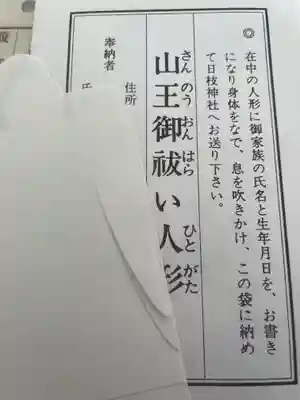 ◎
在中の人形に御家族の氏名と生年月日を、お書き
になり身体をなで、息を吹きかけ、この袋に納め
て日枝神社へお送り下さい。
さんのうおんはらひとがた
山王御祓い人形
奉納者
住所
氏